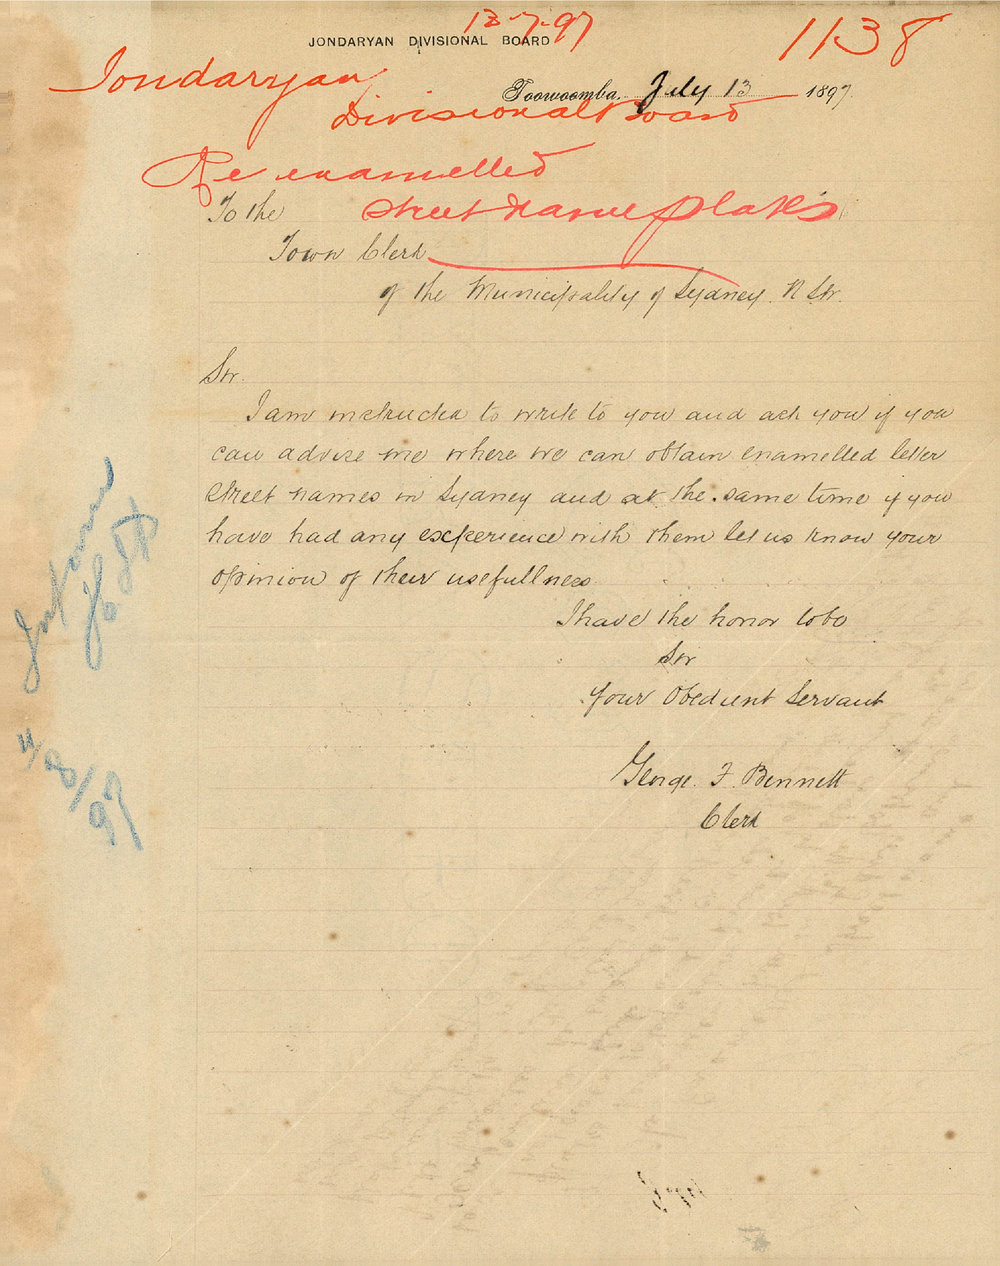 13-7-97
1138
JONDARYAN DIVISIONAL BOARD
Jondaryan
Toowoomba, July 13 1897
Divisional Board
Re enamelled
Street Name Plates
To the
Town Clerk
of the Municipality of Sydney. N S W.
Sir.
I am instructed to write to you and ask you if you
can advise me where we can obtain enamelled letter
street names in Sydney and at the same time if you
have had any experience with them let us know your
opinion of their usefullness
I have the honor to be
Sir
Your Obedient Servant
George. F. Bennett
Clerk
4/8/97